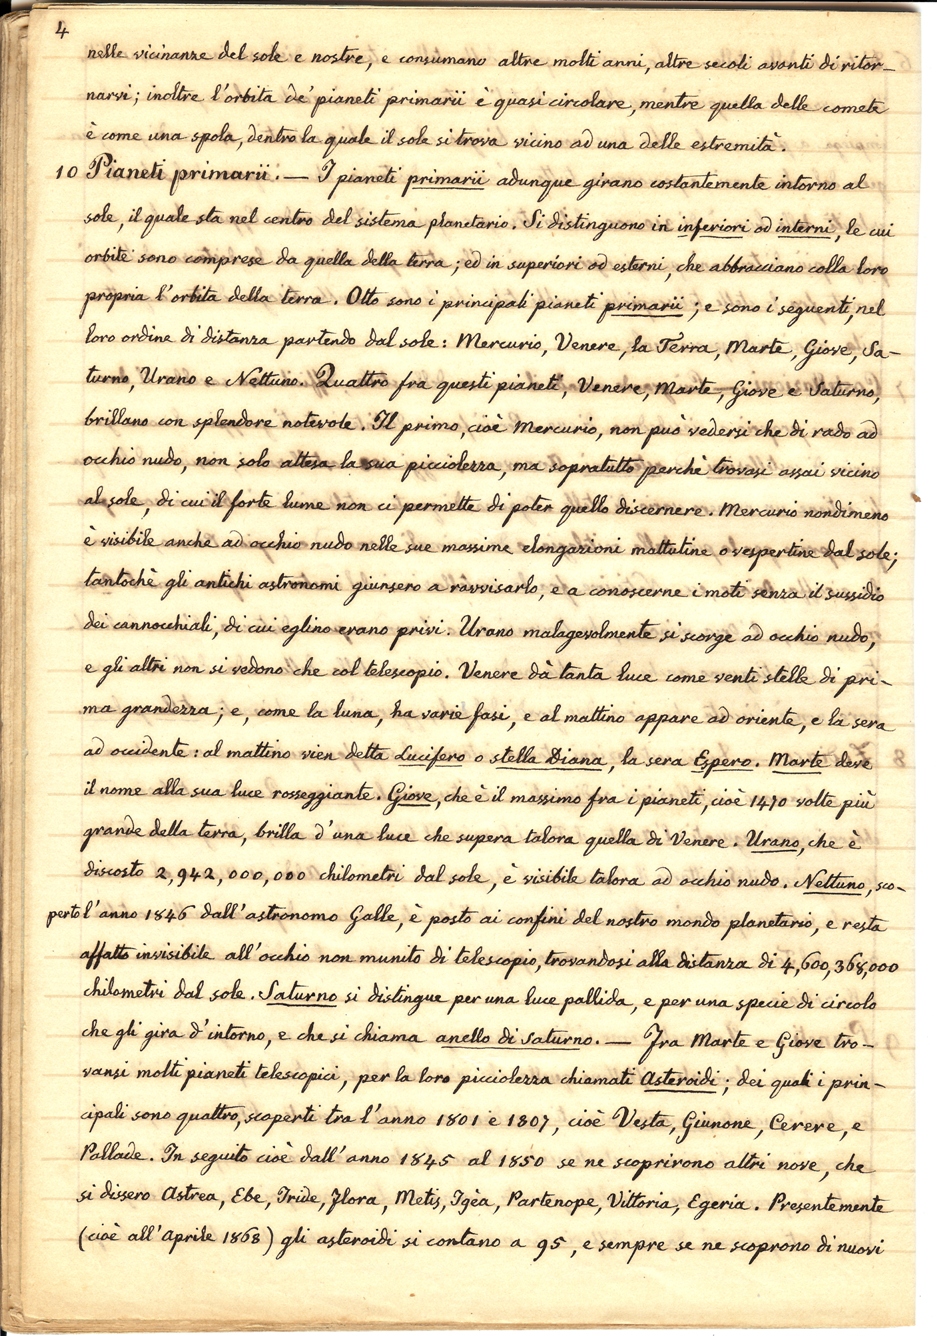 4
nelle vicinanze del sole e nostre, e consumano altre molti anni, altre secoli avanti di ritor-
narvi; inoltre l'orbita de' pianeti primarii è quasi circolare, mentre quella delle comete
è come una spola, dentro la quale il sole si trova vicino ad una delle estremità.
10 Pianeti primarii. — I pianeti primarii adunque girano costantemente intorno al
sole, il quale sta nel centro del sistema planetario. Si distinguono in inferiori od interni, le cui
orbite sono comprese da quella della terra; ed in superiori od esterni, che abbracciano colla loro
propria l'orbita della terra. Otto sono i principali pianeti primarii; e sono i seguenti, nel
loro ordine di distanza partendo dal sole: Mercurio, Venere, la Terra, Marte, Giove, Sa-
turno, Urano e Nettuno. Quattro fra questi pianeti, Venere, Marte, Giove e Saturno,
brillano con splendore notevole. Il primo, cioè Mercurio, non può vedersi che di rado ad
occhio nudo, non solo attesa la sua picciolezza, ma sopratutto perchè trovasi assai vicino
al sole, di cui il forte lume non ci permette di poter quello discernere. Mercurio nondimeno
è visibile anche ad occhio nudo nelle sue massime elongazioni mattutine o vespertine dal sole;
tantochè gli antichi astronomi giunsero a ravvisarlo, e a conoscerne i moti senza il sussidio
dei cannocchiali, di cui eglino erano privi. Urano malagevolmente si scorge ad occhio nudo,
e gli altri non si vedono che col telescopio. Venere dà tanta luce come venti stelle di pri-
ma grandezza; e, come la luna, ha varie fasi, e al mattino appare ad oriente, e la sera
ad occidente: al mattino vien detta Lucifero o stella Diana, la sera Espero. Marte deve
il nome alla sua luce rosseggiante. Giove, che è il massimo fra i pianeti, cioè 1470 volte più
grande della terra, brilla d'una luce che supera talora quella di Venere. Urano, che è
discosto 2,942,000,000 chilometri dal sole, è visibile talora ad occhio nudo. Nettuno, sco-
perto l'anno 1846 dall'astronomo Galle, è posto ai confini del nostro mondo planetario, e resta
affatto invisibile all'occhio non munito di telescopio, trovandosi alla distanza di 4,600,368,000
chilometri dal sole. Saturno si distingue per una luce pallida, e per una specie di circolo
che gli gira d'intorno, e che si chiama anello di Saturno. — Fra Marte e Giove tro-
vansi molti pianeti telescopici, per la loro picciolezza chiamati Asteroidi; dei quali i prin-
cipali sono quattro, scoperti tra l'anno 1801 e 1807, cioè Vesta, Giunone, Cerere, e
Pallade. In seguito cioè dall'anno 1845 al 1850 se ne scoprirono altri nove, che
si dissero Astrea, Ebe, Iride, Flora, Metis, Igèa, Partenope, Vittoria, Egeria. Presentemente
(cioè all'Aprile 1868) gli asteroidi si contano a 95, e sempre se ne scoprono di nuovi